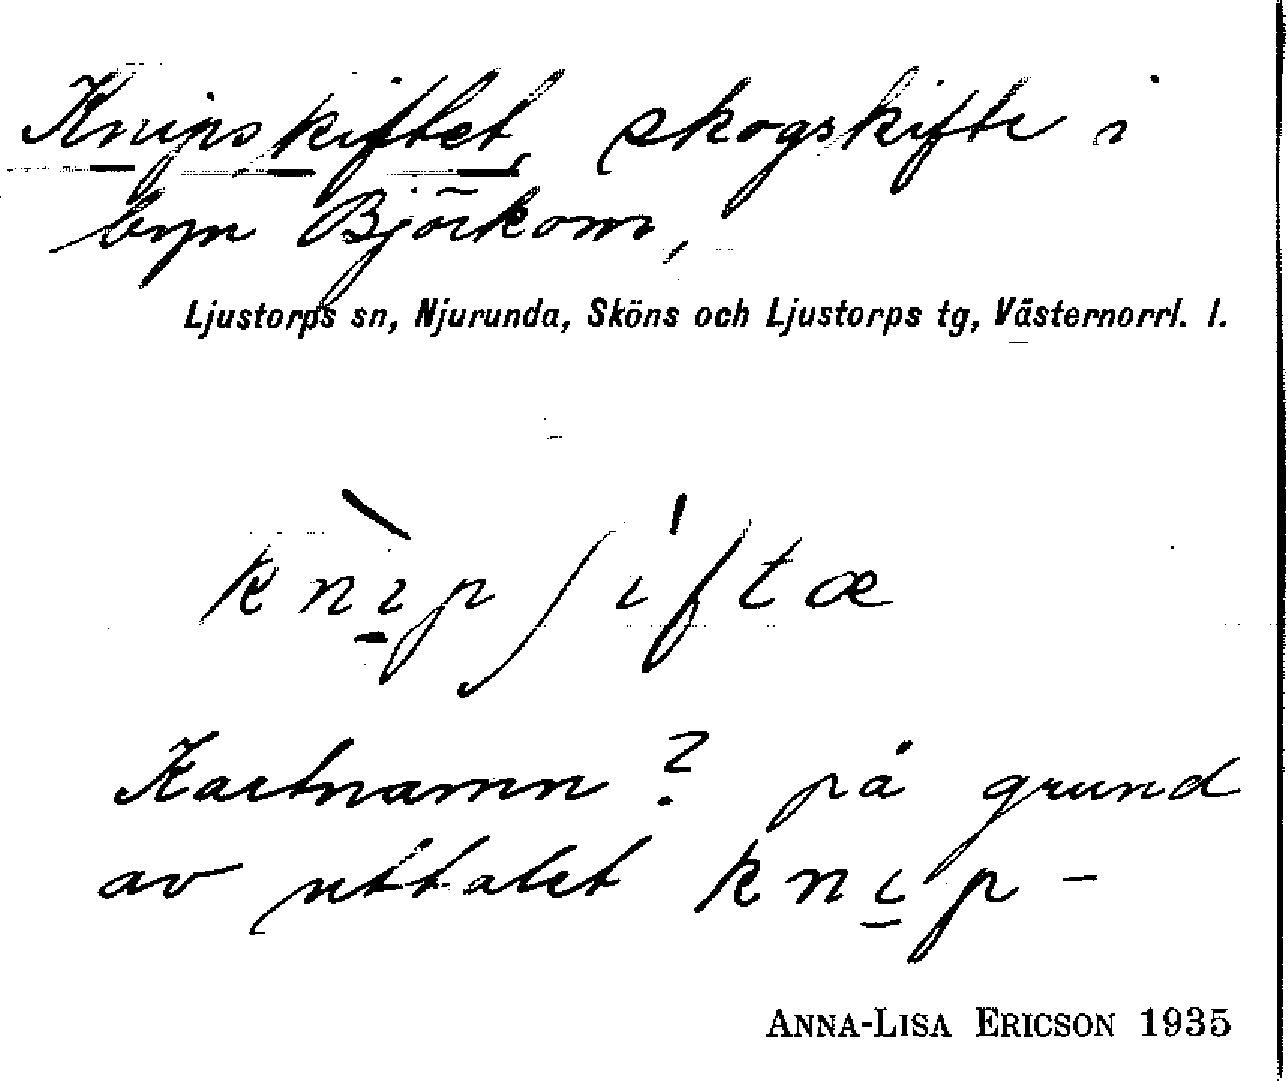 Knipskiftet, skogskifte i
byn Björkom,
Ljustorps sn, Njurunda, Sköns och Ljustorps tg, Västernorrl. l.
knı̲̀pʃı̍ftæ
Kartnamn? på grund
av uttalet knı̲p-
ANNA-LISA ERICSON 1935